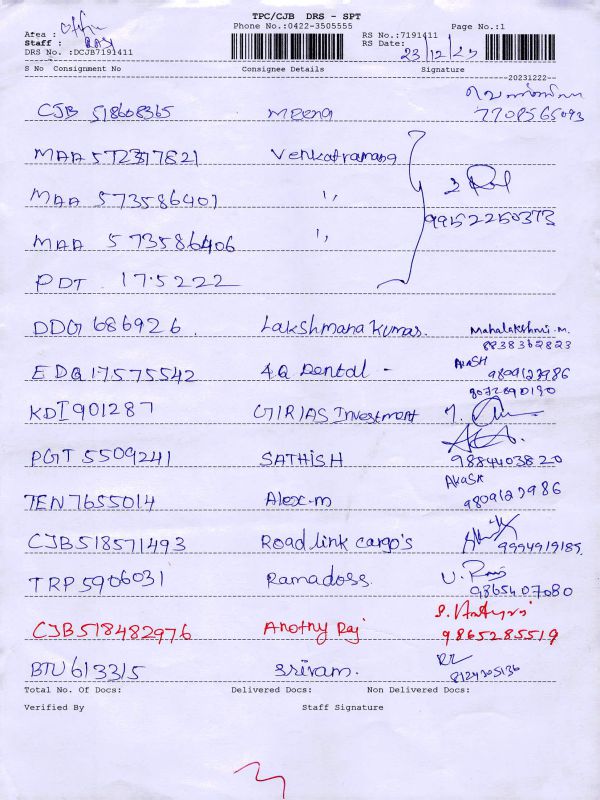 TPC/CJB DRS - SPT
Phone No.:0422-3505555 Page No.:1
Area :
Staff : RAJ
RS No.:7191411
RS Date: 23/12/25
DRS No. :DCJB7191411
S No Consignment No Consignee Details Signature
20231222--
CJB 518608365 Meena 7708565093
MAA 572377821 Venkatramana
MAA 573586401 ''
99152250373
MAA 573586406 ''
PDT 175222
DDG 686926 Lakshmana Kumar. Mahalakshmi.M.
8838362823
EDQ17575542 4Q Dental - AKASH
9809127986
8072890190
KDI901287 GIRIAS Investment
PGT 5509241 SATHISH 9884403820
TEN7655014 Alex.m AKASH
9809127986
CJB518571493 Road link cargo's 9994919185
TRP5906031 Ramadoss. U. Raj
9865407080
CJB518482976 Anothy Raj 9865285519
BTU613315 Sriram. 8124205136
Total No. Of Docs: Delivered Docs: Non Delivered Docs:
Verified By Staff Signature